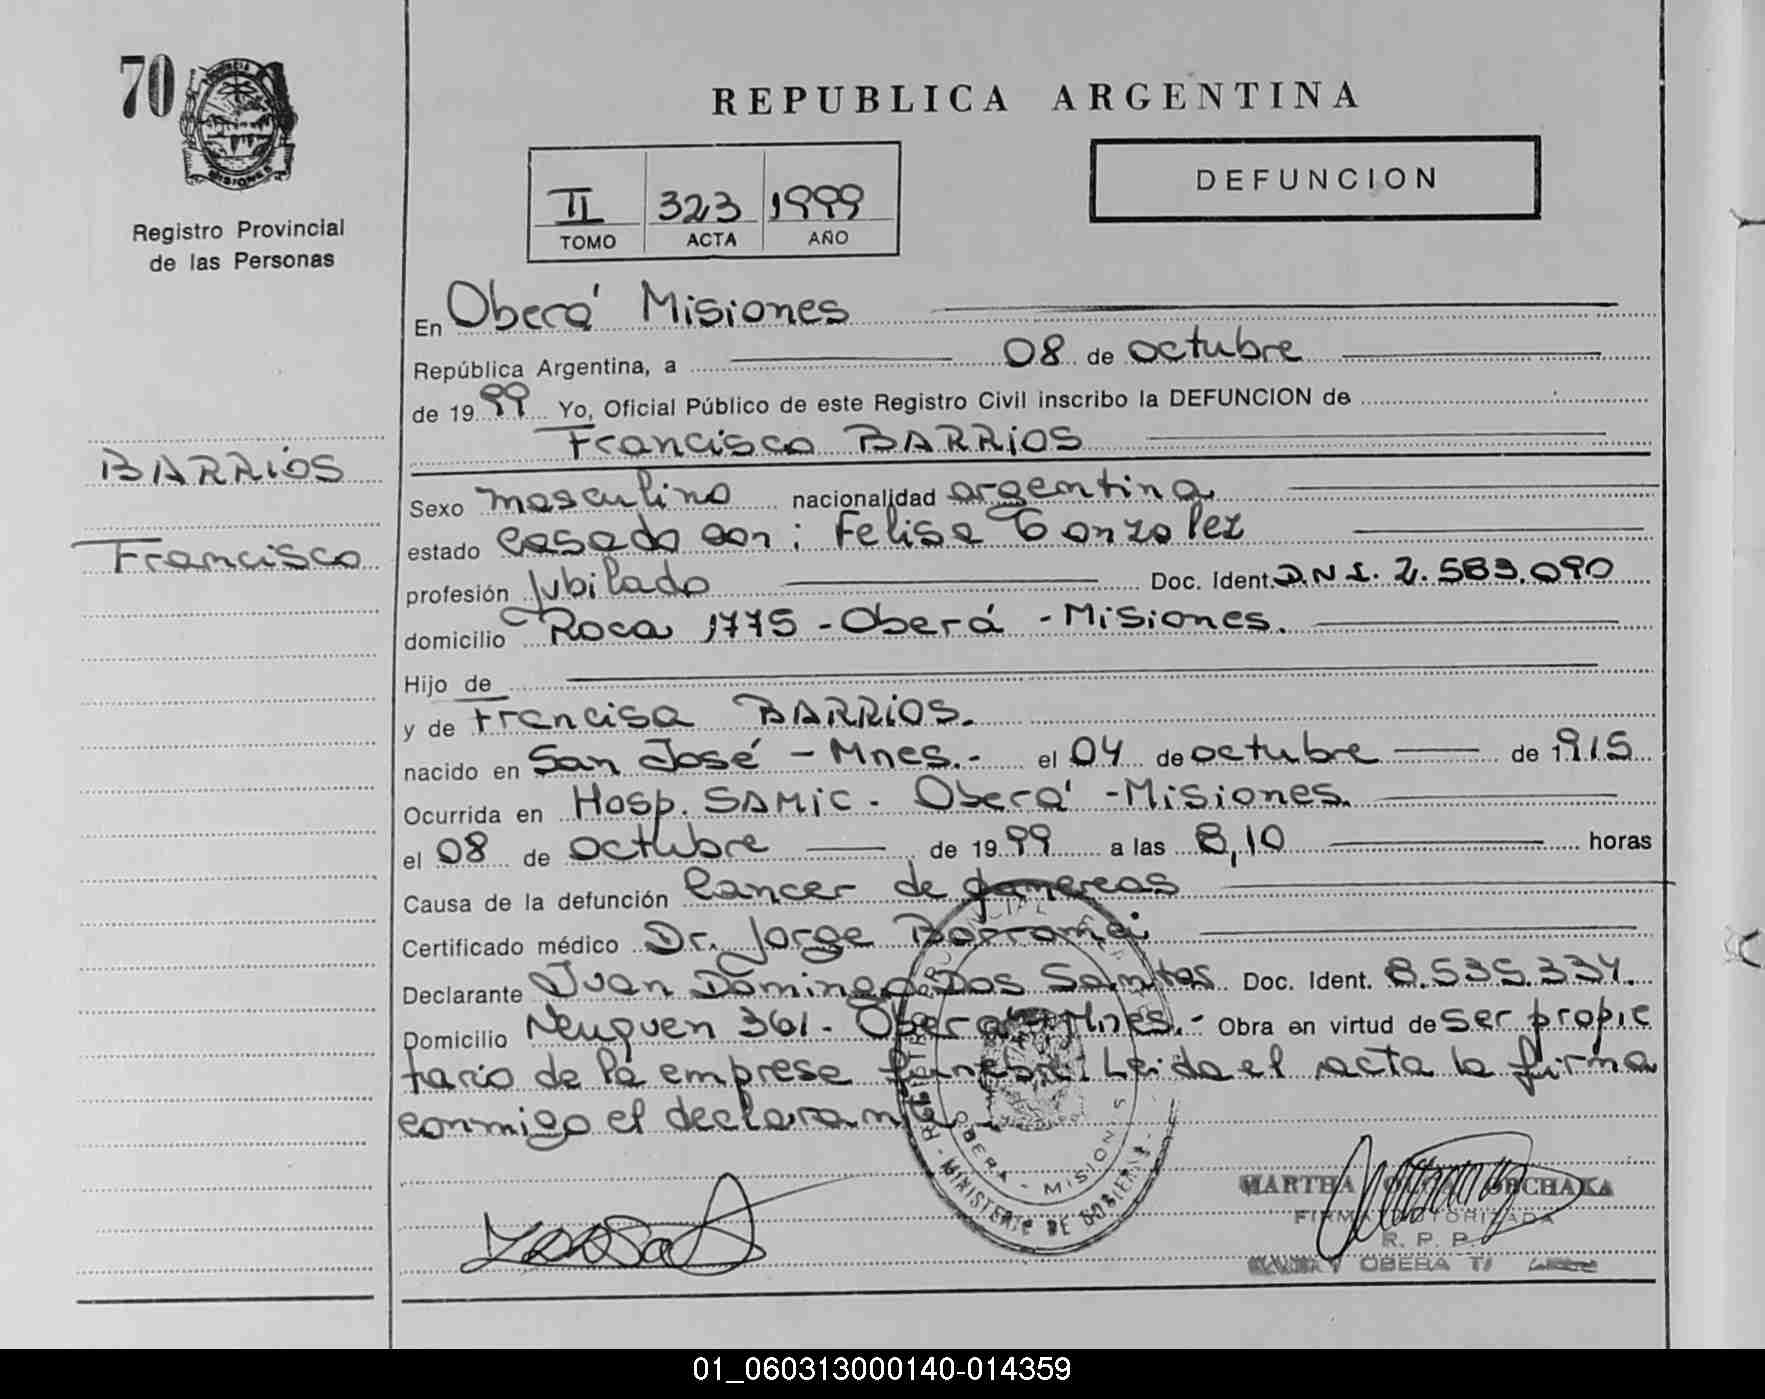 70
MISIONES
Registro Provincial
de las Personas
BARRIOS
Francisco
REPUBLICA ARGENTINA
II 323 1999
TOMO ACTA AÑO
DEFUNCION
En Oberá Misiones
República Argentina, a 08 de octubre
de 1999 Yo, Oficial Público de este Registro Civil inscribo la DEFUNCION de
Francisco BARRIOS
Sexo masculino nacionalidad argentina
estado casado con: Felisa Gonzalez
profesión Jubilado Doc. Ident. D.N.I. 2.583.090
domicilio Roca 1775 - Oberá - Misiones.
Hijo de
y de Francisca BARRIOS.
nacido en San José - Mnes.- el 04 de octubre de 1915
Ocurrida en Hosp. SAMIC. Oberá - Misiones.
el 08 de octubre de 1999 a las 8,10 horas
Causa de la defunción Cancer de pancreas
Certificado médico Dr. Jorge
Declarante Juan Domingo Dos Santos Doc. Ident. 8.535.334.
Domicilio Neuquen 361- Oberá - Mnes.- Obra en virtud de ser propie
tario de la empresa funebre. Leida el acta la firma
conmigo el declarante
OBERA - MISIONES
MINISTERIO DE GOBIERNO
MARTHA OLGA
FIRMA AUTORIZADA
R. P. P.
OBERA
01_060313000140-014359